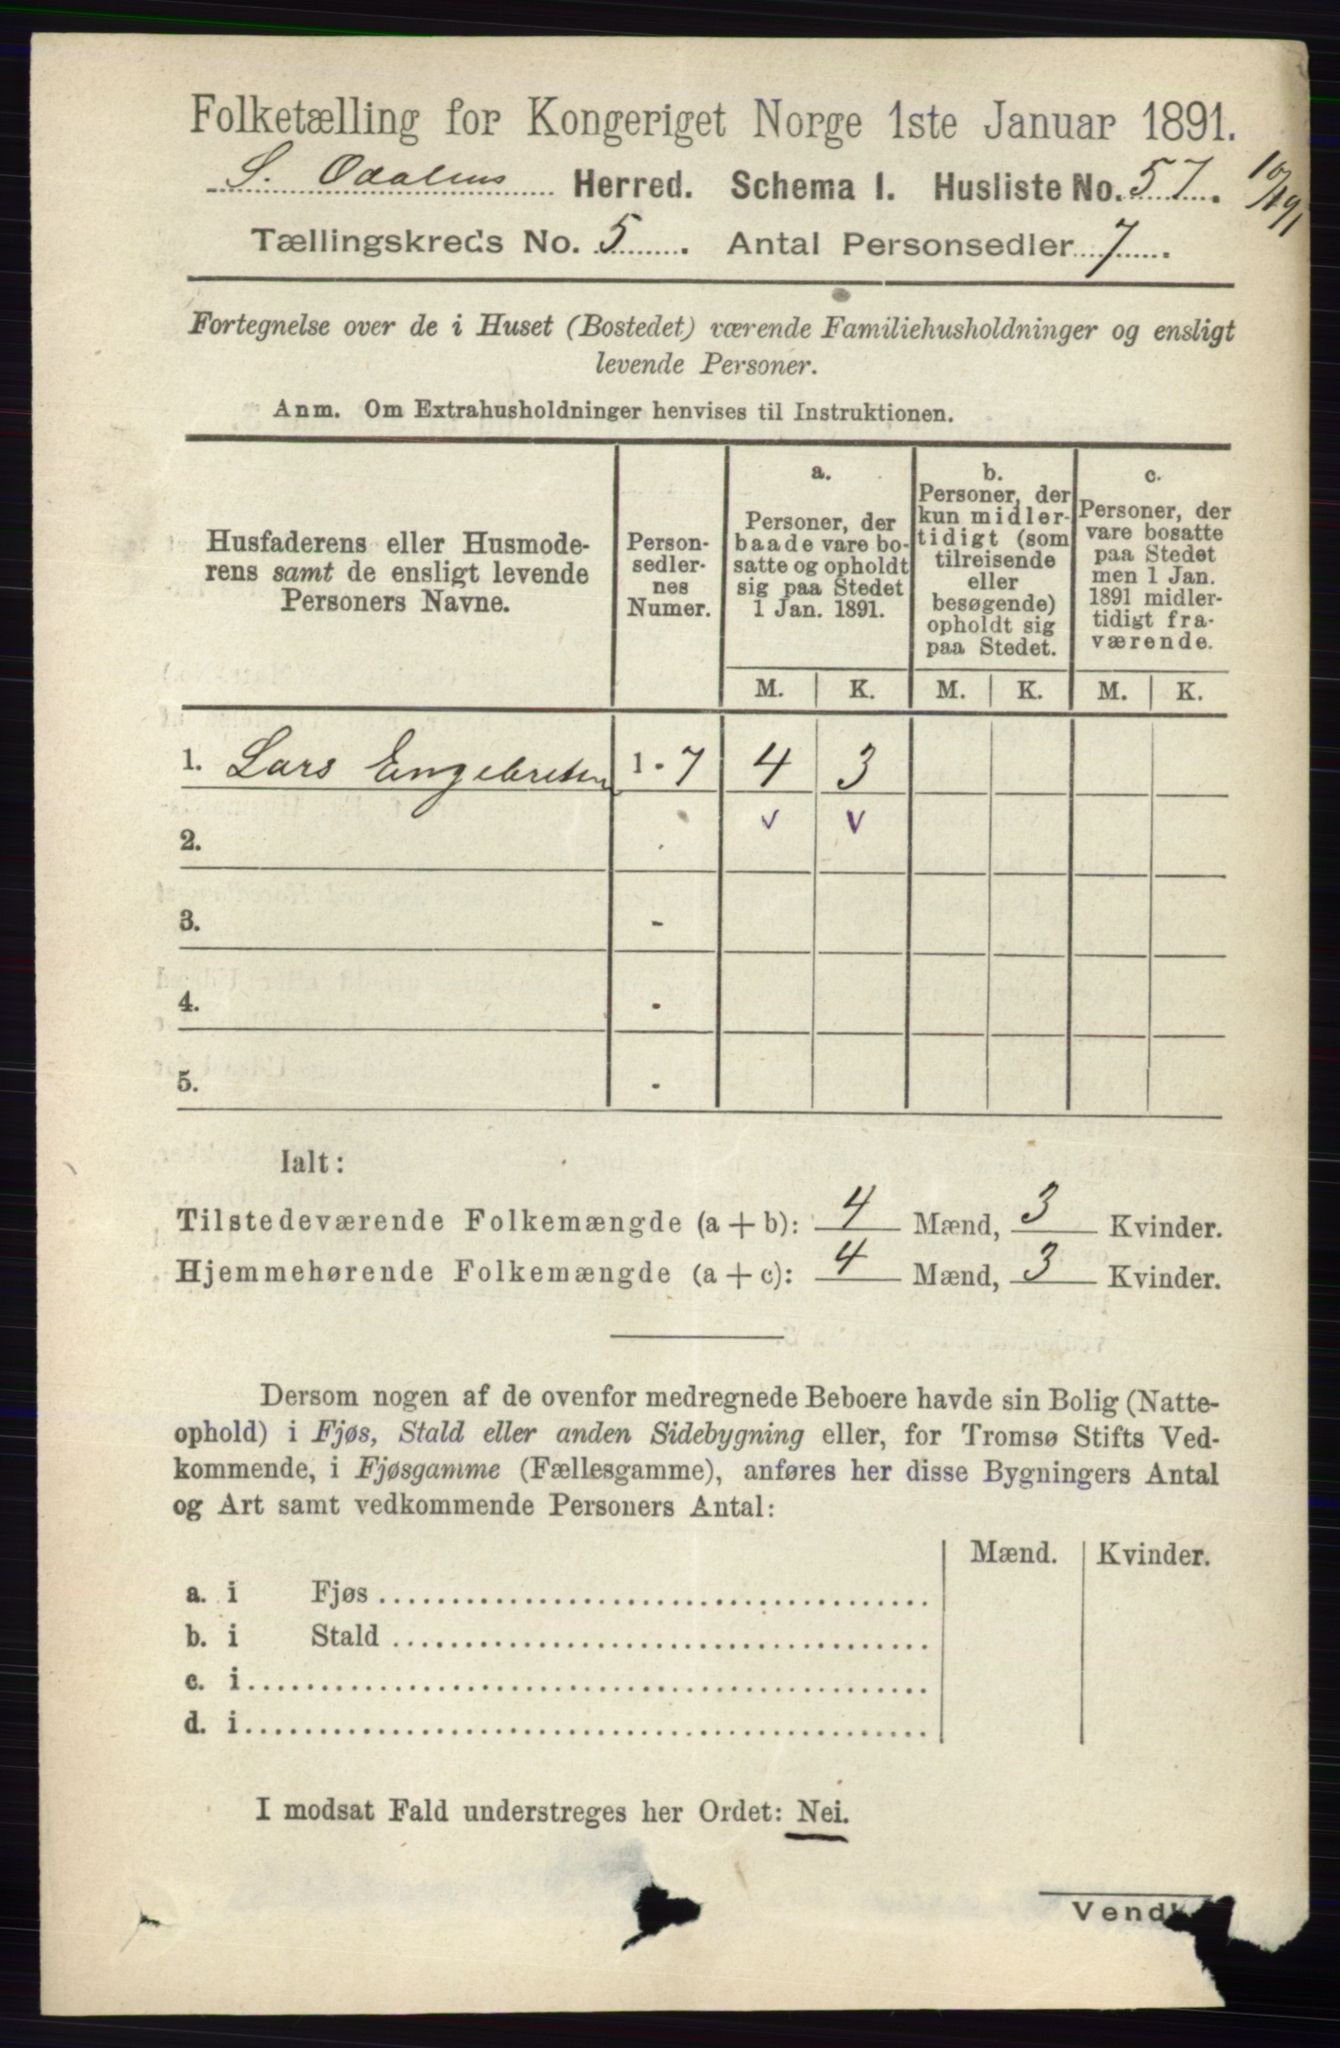 Folketælling for Kongeriget Norge 1ste Januar 1891.
S. Odalens Herred. Schema I. Husliste No. 57.
Tællingskreds No. 5. Antal Personsedler 7.
Fortegnelse over de i Huset (Bostedet) værende Familiehusholdninger og ensligt
levende Personer.
Anm. Om Extrahusholdninger henvises til Instruktionen.
Husfaderens eller Husmode-
rens samt de ensligt levende
Personers Navne.
Person-
sedler-
nes
Numer.
a.
Personer, der
baade vare bo-
satte og opholdt
sig paa Stedet
1 Jan. 1891.
b.
Personer, der
kun midler-
tidigt (som
tilreisende
eller
besøgende)
opholdt sig
paa Stedet.
c.
Personer, der
vare bosatte
paa Stedet
men 1 Jan.
1891 midler-
tidigt fra-
værende.
M. K. M. K. M. K.
1. Lars Engebretsen 1 - 7 4 3
2. v v
3. -
4. -
5. -
Ialt:
Tilstedeværende Folkemængde (a + b): 4 Mænd, 3 Kvinder.
Hjemmehørende Folkemængde (a + c): 4 Mænd, 3 Kvinder.
Dersom nogen af de ovenfor medregnede Beboere havde sin Bolig (Natte-
ophold) i Fjøs, Stald eller anden Sidebygning eller, for Tromsø Stifts Ved-
kommende, i Fjøsgamme (Fællesgamme), anføres her disse Bygningers Antal
og Art samt vedkommende Personers Antal:
Mænd. Kvinder.
a. i Fjøs
b. i Stald
c. i
d. i
I modsat Fald understreges her Ordet: Nei.